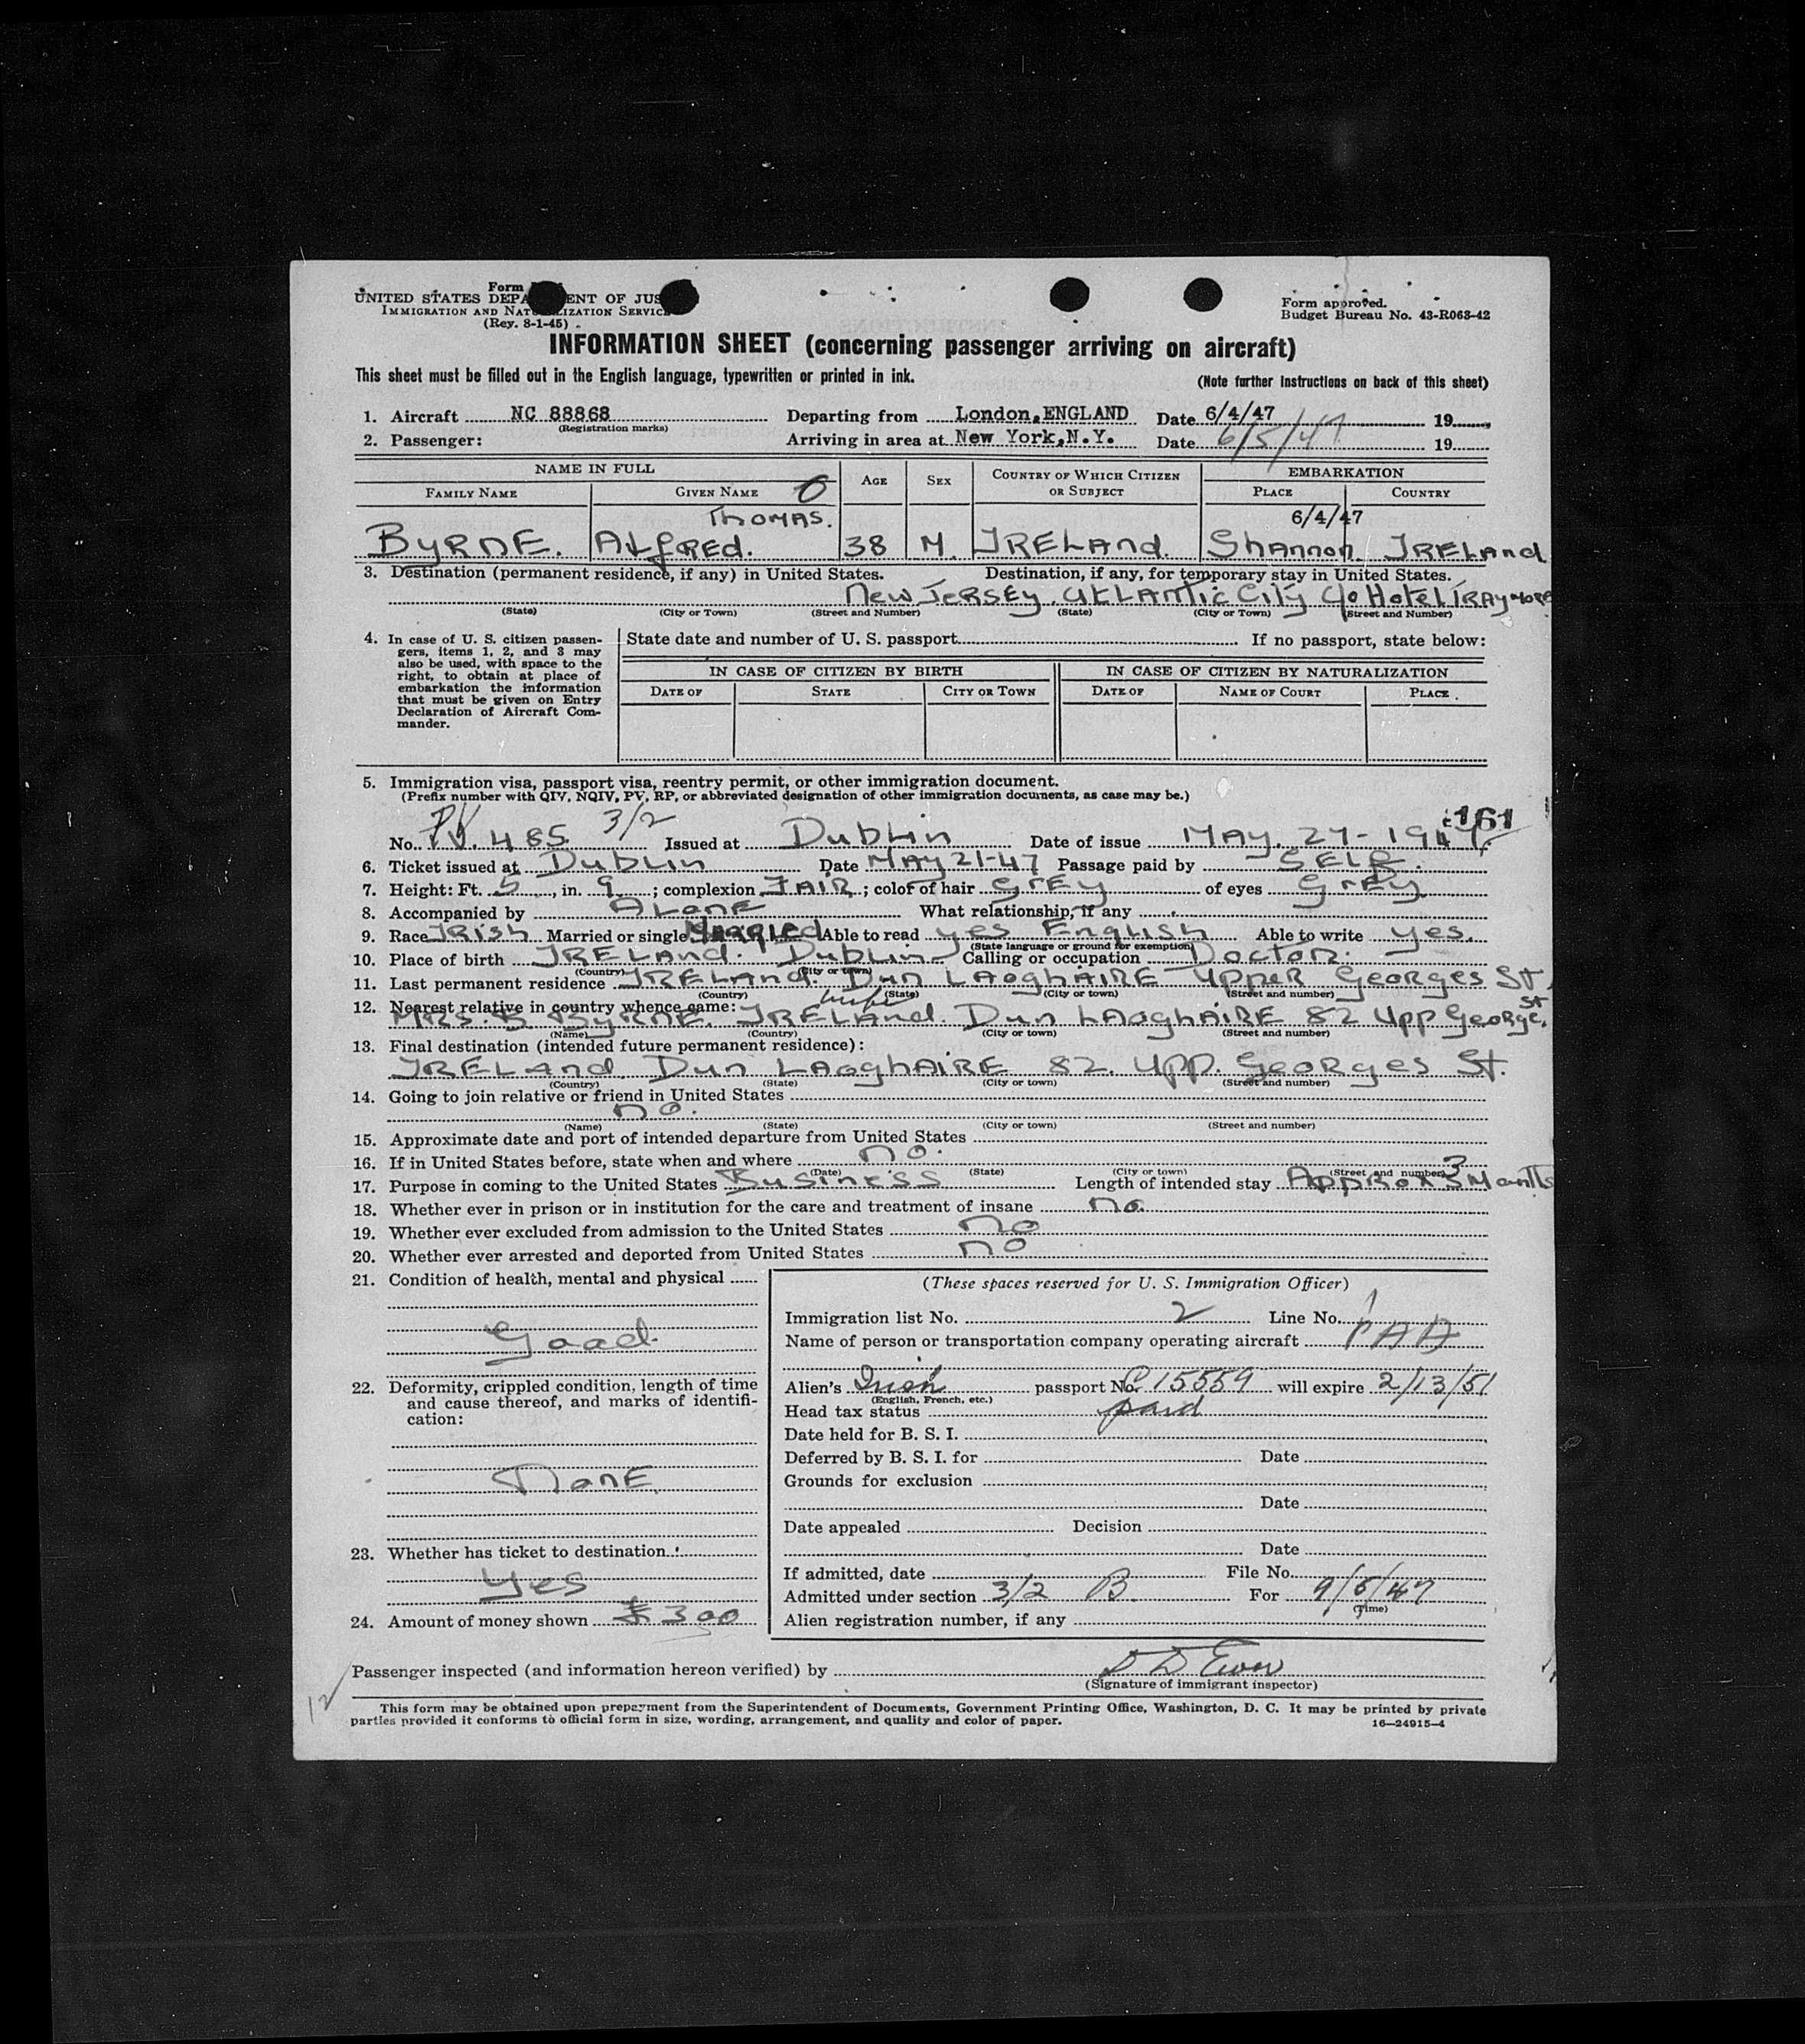 Form
UNITED STATES DEPA ENT OF JUS
IMMIGRATION AND NAT IZATION SERVIC
(Rev. 8-1-45)
Form approved.
Budget Bureau No. 43-R063-42
INFORMATION SHEET (concerning passenger arriving on aircraft)
This sheet must be filled out in the English language, typewritten or printed in ink. (Note further instructions on back of this sheet)
1. Aircraft NC 88868 Departing from London, ENGLAND Date 6/4/47 19
(Registration marks)
2. Passenger: Arriving in area at New York, N.Y. Date 6/5/47 19
NAME IN FULL AGE SEX COUNTRY OF WHICH CITIZEN OR SUBJECT EMBARKATION
FAMILY NAME GIVEN NAME PLACE COUNTRY
THOMAS. 6/4/47
BYRNE. ALFRED. 38 M. IRELAND. Shannon IRELAND
3. Destination (permanent residence, if any) in United States. Destination, if any, for temporary stay in United States.
New JERSEY. ATLANTIC City c/o Hotel TRAYMORE
(State) (City or Town) (Street and Number) (State) (City or Town) (Street and Number)
4. In case of U. S. citizen passengers, items 1, 2, and 3 may also be used, with space to the right, to obtain at place of embarkation the information that must be given on Entry Declaration of Aircraft Commander.
State date and number of U. S. passport If no passport, state below:
IN CASE OF CITIZEN BY BIRTH IN CASE OF CITIZEN BY NATURALIZATION
DATE OF STATE CITY OR TOWN DATE OF NAME OF COURT PLACE
5. Immigration visa, passport visa, reentry permit, or other immigration document.
(Prefix number with QIV, NQIV, PV, RP, or abbreviated designation of other immigration documents, as case may be.)
PV 3/2 161
No. P.V. 485 Issued at Dublin Date of issue MAY. 27- 1947
6. Ticket issued at Dublin Date MAY 21-47 Passage paid by SELF.
7. Height: Ft. 5, in. 9; complexion FAIR; color of hair GREY of eyes GREY
8. Accompanied by ALONE What relationship, if any
9. Race IRISH Married or single Married Able to read yes English Able to write yes.
(State language or ground for exemption)
10. Place of birth IRELAND. Dublin Calling or occupation Doctor.
(Country) (City or town)
11. Last permanent residence IRELAND. Dun LAOGHAIRE UPPER GEORGES St.
(Country) (State) (City or town) (Street and number)
12. Nearest relative in country whence came: wife
MRS. B BYRNE. IRELAND. Dun LAOGHAIRE 82 Upp George St.
(Name) (Country) (City or town) (Street and number)
13. Final destination (intended future permanent residence):
IRELAND Dun LAOGHAIRE 82. Upp. Georges St.
(Country) (State) (City or town) (Street and number)
14. Going to join relative or friend in United States
no.
(Name) (State) (City or town) (Street and number)
15. Approximate date and port of intended departure from United States
16. If in United States before, state when and where no.
(Date) (State) (City or town) (Street and number)
17. Purpose in coming to the United States Business Length of intended stay Approx 3 Months
18. Whether ever in prison or in institution for the care and treatment of insane no.
19. Whether ever excluded from admission to the United States no
20. Whether ever arrested and deported from United States no
21. Condition of health, mental and physical
Good.
22. Deformity, crippled condition, length of time and cause thereof, and marks of identification:
NONE
23. Whether has ticket to destination
Yes
24. Amount of money shown $ 300
(These spaces reserved for U. S. Immigration Officer)
Immigration list No. 2 Line No. 1
Name of person or transportation company operating aircraft PAA
Alien's Irish passport No. C 15559 will expire 2/13/51
(English, French, etc.)
Head tax status paid
Date held for B. S. I.
Deferred by B. S. I. for Date
Grounds for exclusion
Date
Date appealed Decision
Date
If admitted, date File No.
Admitted under section 3/2 B. For 9/5/47
(Time)
Alien registration number, if any
Passenger inspected (and information hereon verified) by
(Signature of immigrant inspector)
12
This form may be obtained upon prepayment from the Superintendent of Documents, Government Printing Office, Washington, D. C. It may be printed by private
parties provided it conforms to official form in size, wording, arrangement, and quality and color of paper. 16—24915-4